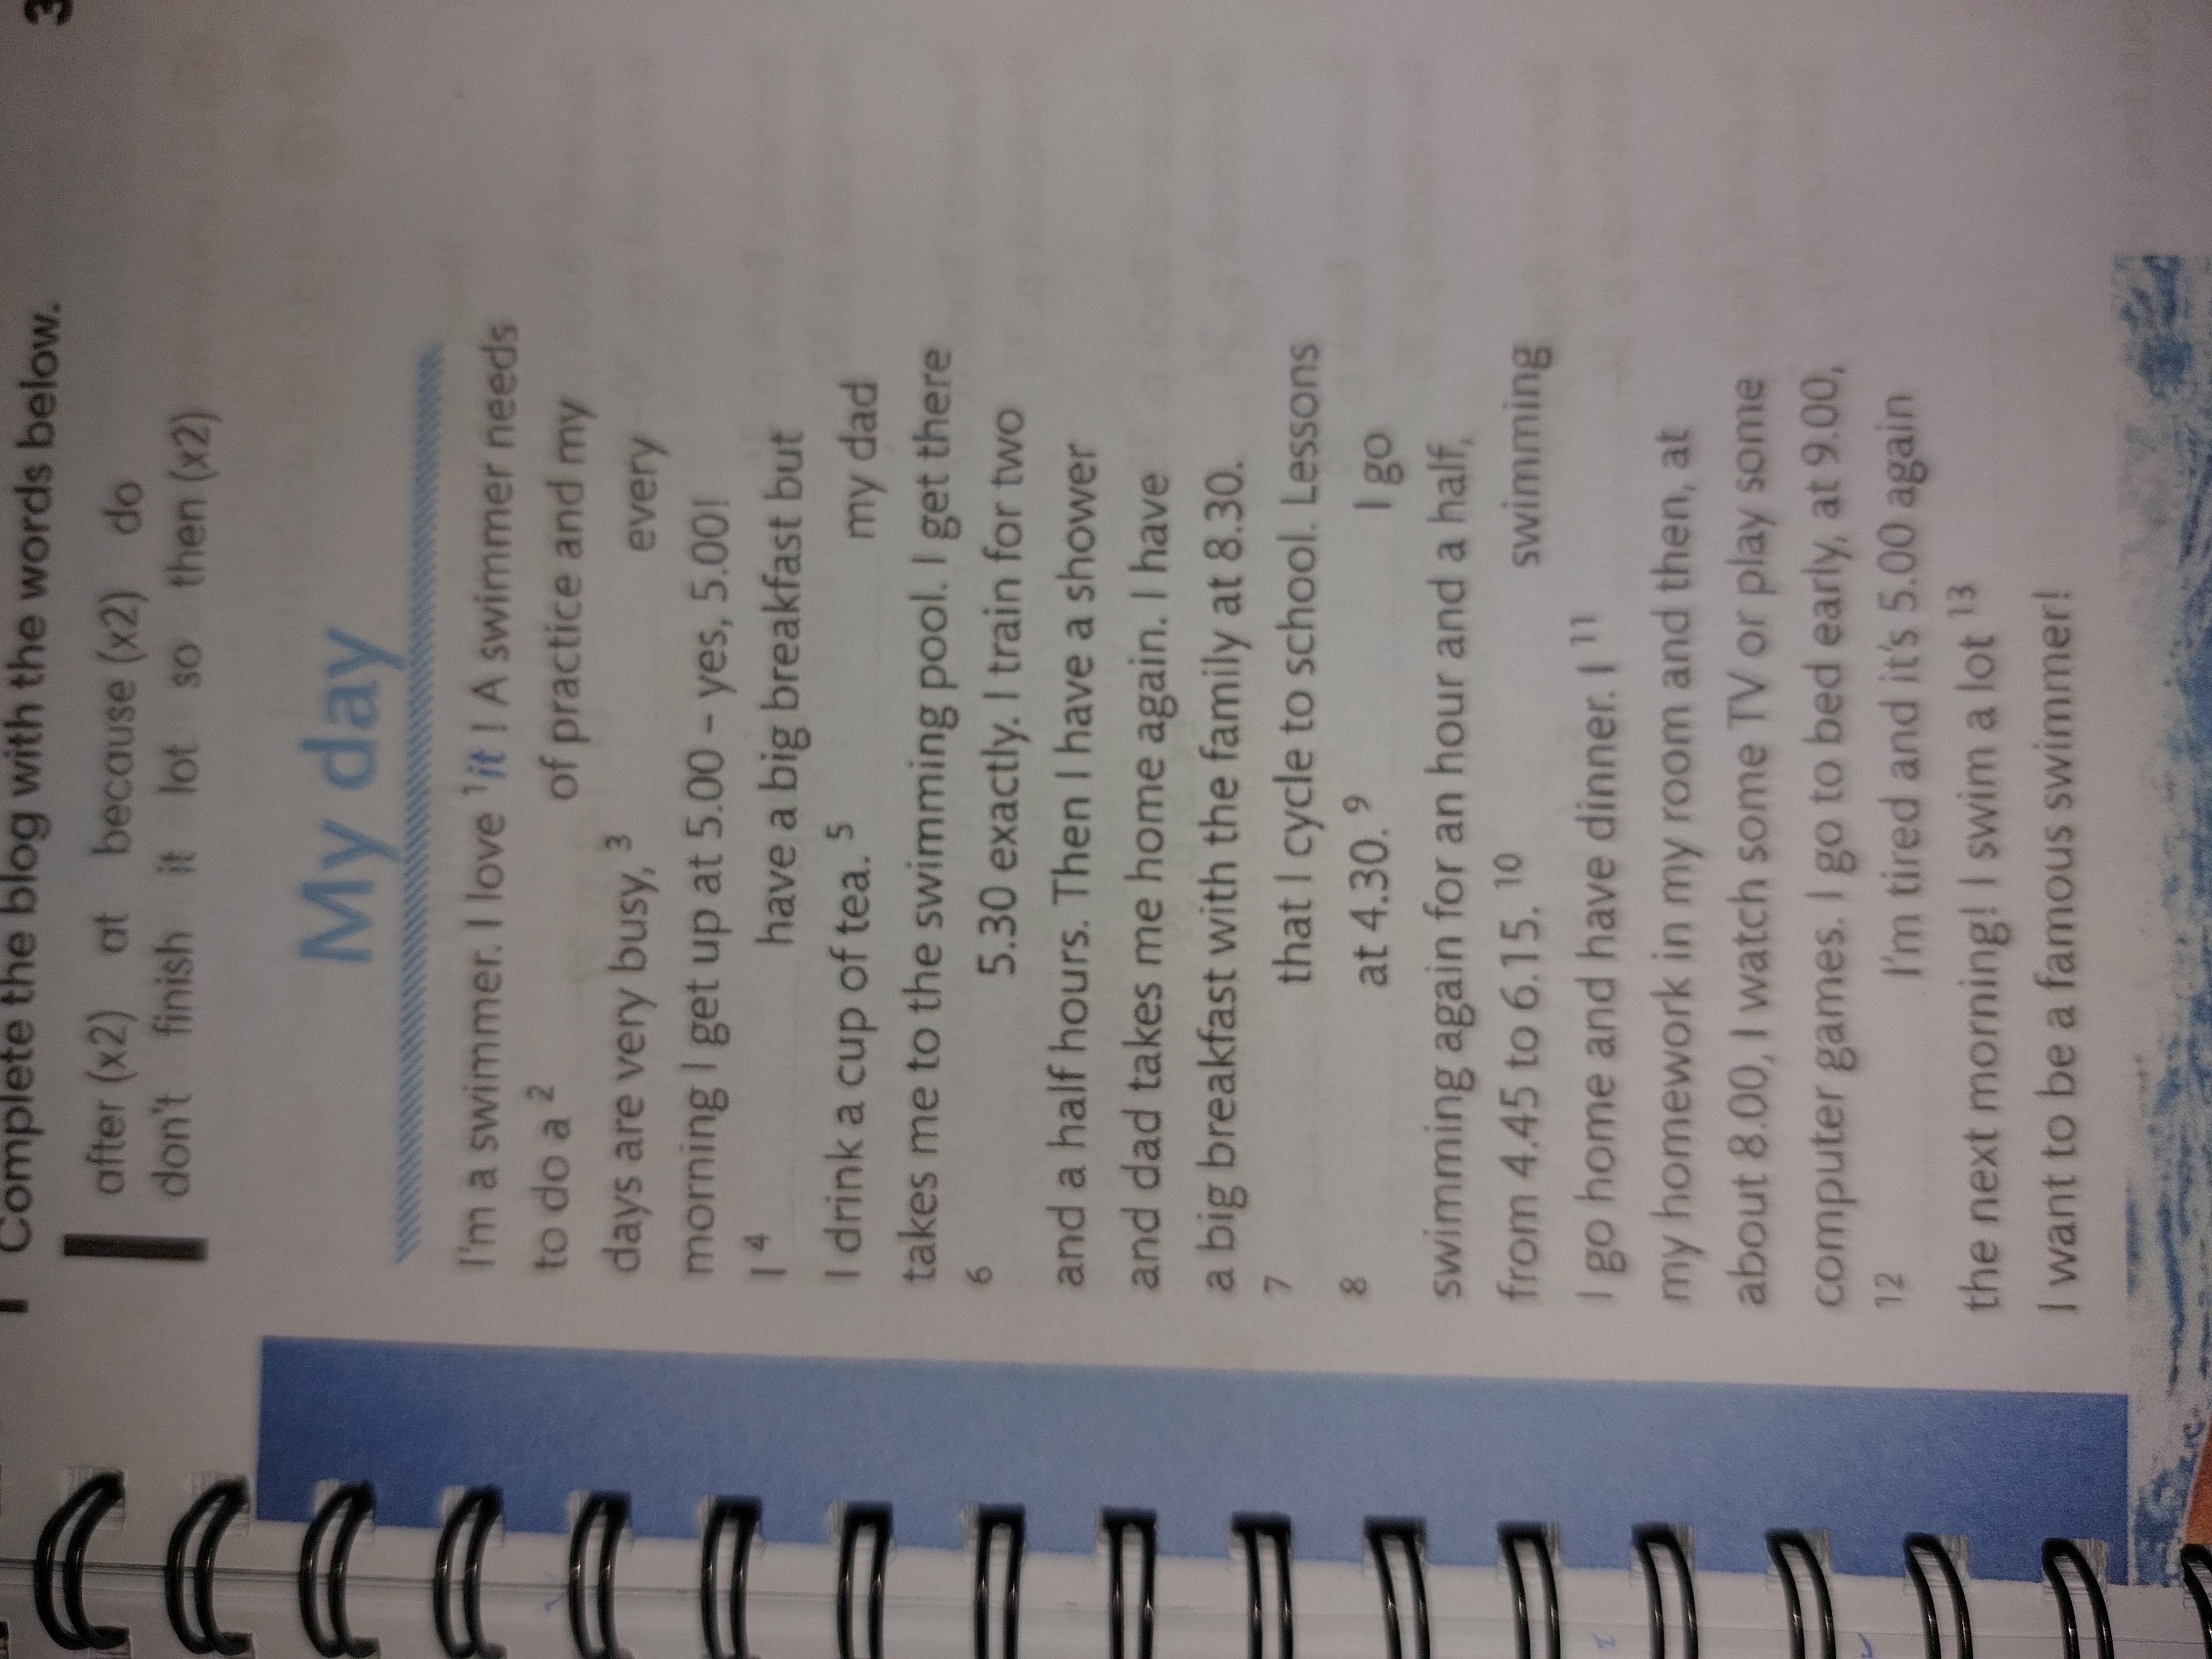 3
1 Complete the blog with the words below.
after (x2) at because (x2) do
don't finish it lot so then (x2)
My day
I'm a swimmer. I love 1 it ! A swimmer needs
to do a 2 of practice and my
days are very busy, 3 every
morning I get up at 5.00 – yes, 5.00!
I 4 have a big breakfast but
I drink a cup of tea. 5 my dad
takes me to the swimming pool. I get there
6 5.30 exactly. I train for two
and a half hours. Then I have a shower
and dad takes me home again. I have
a big breakfast with the family at 8.30.
7 that I cycle to school. Lessons
8 at 4.30. 9 I go
swimming again for an hour and a half,
from 4.45 to 6.15. 10 swimming
I go home and have dinner. I 11
my homework in my room and then, at
about 8.00, I watch some TV or play some
computer games. I go to bed early, at 9.00,
12 I'm tired and it's 5.00 again
the next morning! I swim a lot 13
I want to be a famous swimmer!